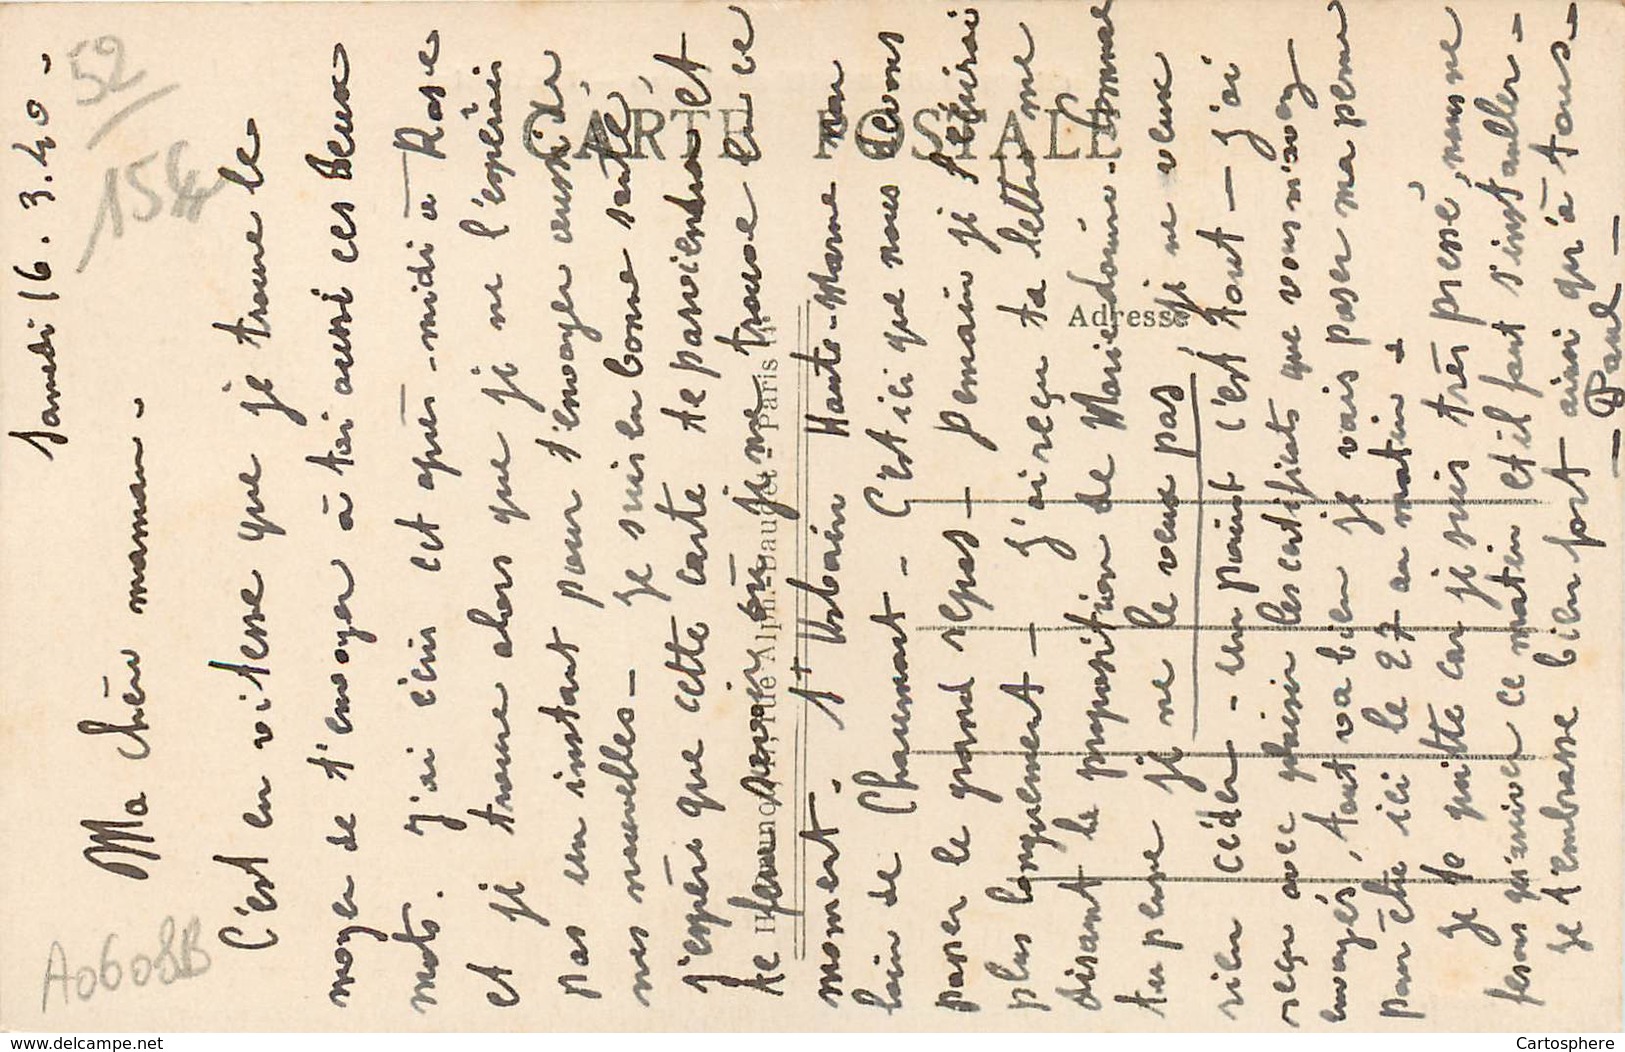 Samedi 16.3.40-
Ma chère maman-
C'est en vitesse que je trouve le
moyen de t'envoyer à toi aussi ces deux
mots. J'ai écris cet après-midi à Rose
et je trouve alors que je ne l'espérais
pas un instant pour t'envoyer aussi de
mes nouvelles- Je suis en bonne santé,
j'espère que cette carte te parviendra et
te fera savoir où je me trouve en ce
moment. St Urbain Haute-Marne non
loin de Chaumont- C'est ici que nous devons
passer le grand repos- Demain je t'écrirai
plus longuement- J'ai reçu ta lettre me
disant la proposition de Marie Domme
tu penses je ne le veux pas, je ne veux
rien céder- un point c'est tout- J'ai
reçu avec plaisir les certificats que vous m'avez
envoyés, tout va bien je vais passer ma perme
pour être ici le 27 au matin-
Je te quitte car je suis très pressé, nous ne
fesons qu'arriver ce matin et il faut s'installer-
Je t'embrasse bien fort ainsi qu'à tous-
-Paul-
CARTE POSTALE
Adresse
rue Alph. Daudet - Paris
52
15€
A0608B
delcampe.net
Cartosphere